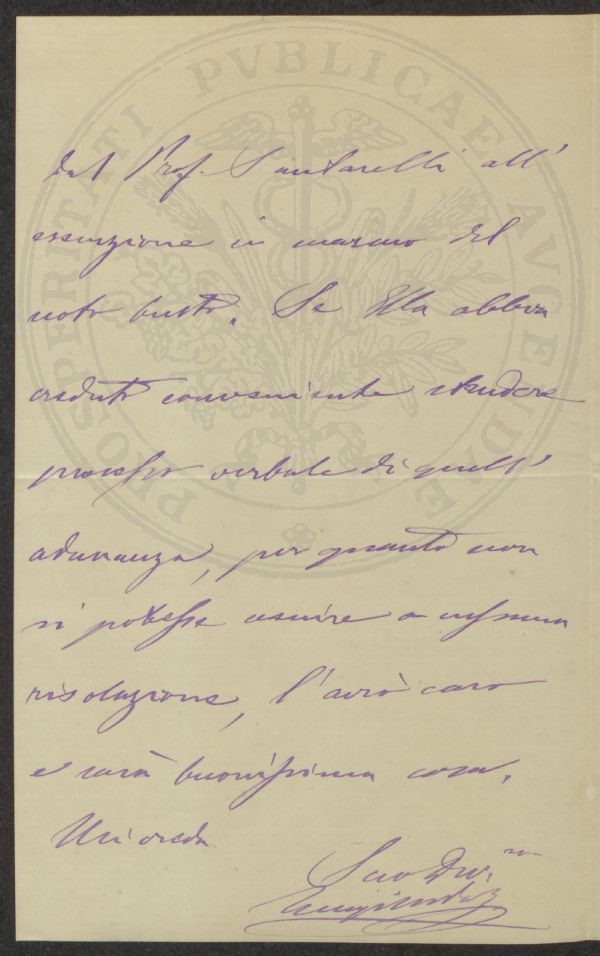 PROSPERITATI PVBLICAE AVGENDAE
dal Prof. Santarelli all'
esecuzione in marmo del
noto busto. Se Ella abbia
creduto conveniente stendere
processo verbale di quell'
adunanza, per quanto non
si potesse venire a nessuna
risoluzione, l'avrò caro
e sarà buonissima cosa.
Mi creda
Suo Dev.mo